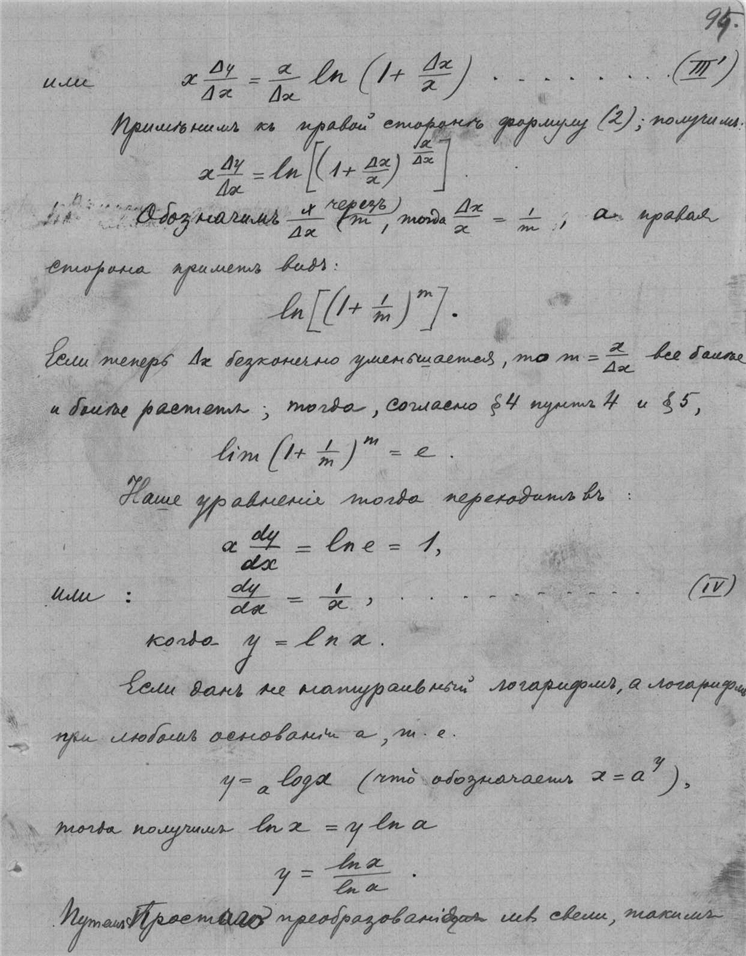 95.
или x Δy/Δx = x/Δx ln (1 + Δx/x) . . . . . . . . (III')
Примѣнимъ къ правой сторонѣ формулу (2); получимъ:
x Δy/Δx = ln [(1 + Δx/x)^(x/Δx)].
Обозначимъ x/Δx черезъ m, тогда Δx/x = 1/m; а правая
сторона приметъ видъ:
ln [(1 + 1/m)^m].
Если теперь Δx безконечно уменьшается, то m = x/Δx все болѣе
и болѣе растетъ; тогда, согласно §4 пунктъ 4 и §5,
lim (1 + 1/m)^m = e.
Наше уравненіе тогда переходитъ въ:
x dy/dx = ln e = 1,
или: dy/dx = 1/x, . . . . . . . . . . . (IV)
когда y = ln x.
Если данъ не натуральный логарифмъ, а логарифмъ
при любомъ основаніи a, т. е.
y = a log x (что обозначаетъ x = a^y),
тогда получимъ ln x = y ln a
y = ln x / ln a.
Путемъ простого преобразованія мы свели, такимъ